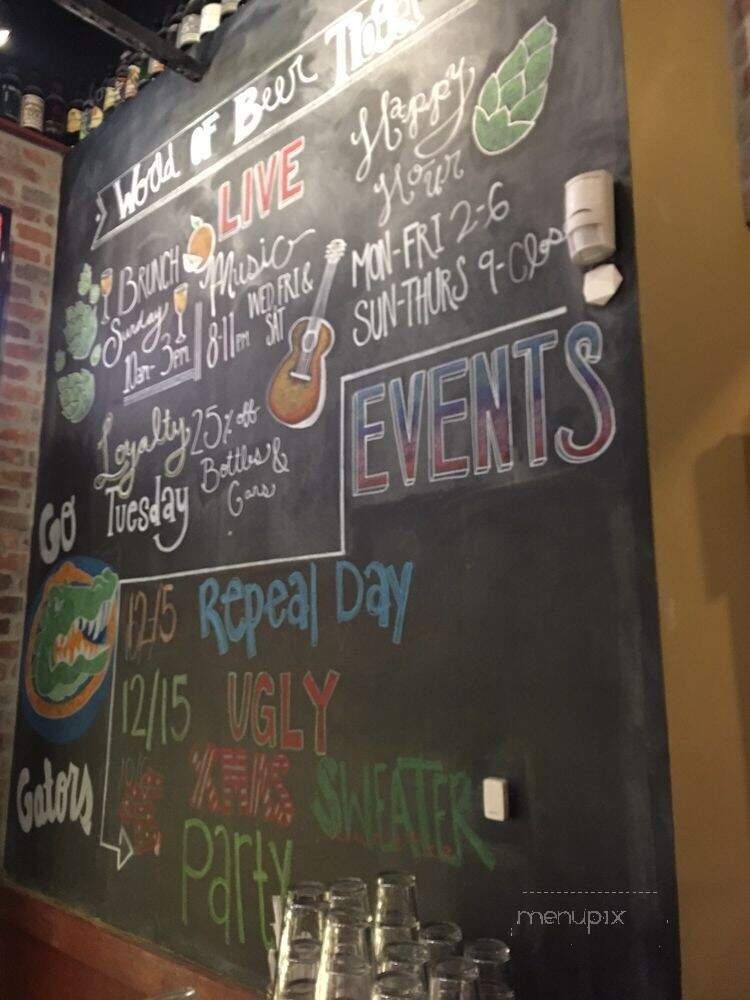 World OF Beer
LIVE
Music
WED, FRI &
SAT
8-11PM
Happy
Hour
MON-FRI 2-6
SUN-THURS 9-Clos
BRUNCH
Sunday
10am-3pm
Loyalty
Tuesday
25% off
Bottles &
Cans
EVENTS
GO
Gators
12/5 Repeal Day
12/15 UGLY
XMAS SWEATER
Party
menupix